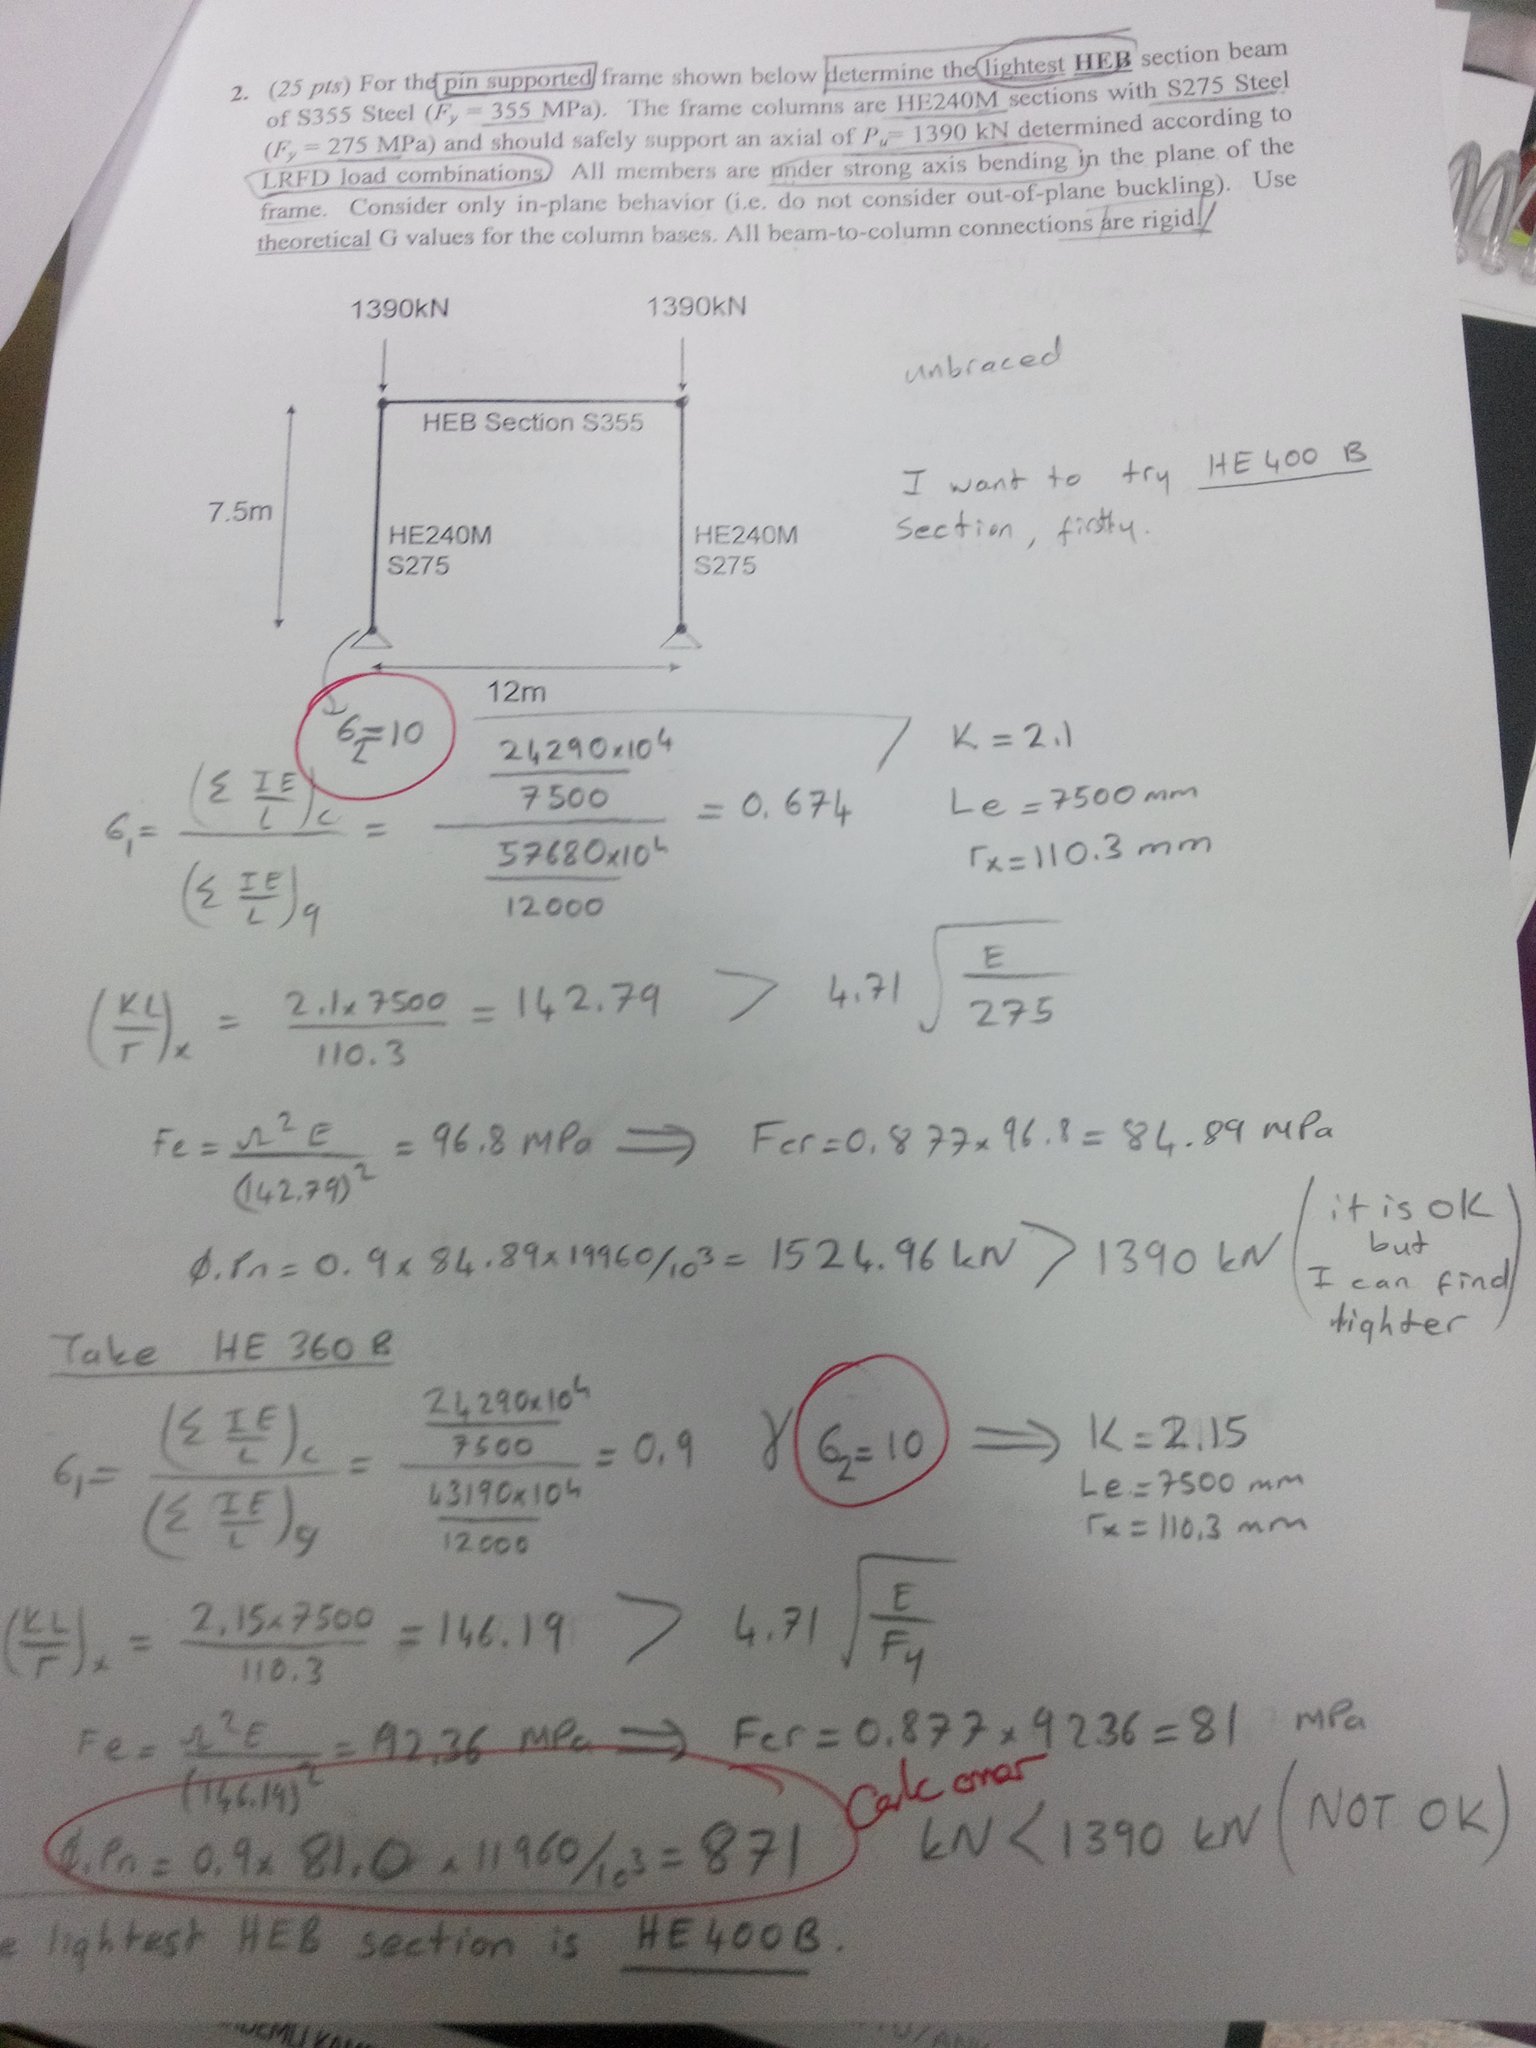 2. (25 pts) For the pin supported frame shown below determine the lightest HEB section beam
of S355 Steel (Fy = 355 MPa). The frame columns are HE240M sections with S275 Steel
(Fy = 275 MPa) and should safely support an axial of Pu= 1390 kN determined according to
LRFD load combinations) All members are under strong axis bending in the plane of the
frame. Consider only in-plane behavior (i.e. do not consider out-of-plane buckling). Use
theoretical G values for the column bases. All beam-to-column connections are rigid!
1390kN 1390kN
unbraced
HEB Section S355
I want to try HE 400 B
section, firstly.
7.5m
HE240M HE240M
S275 S275
12m
G2=10
G1 = (Σ IE/L)c / (Σ IE/L)g = (24290x10^4 / 7500) / (57680x10^4 / 12000) = 0.674
K = 2.1
Le = 7500 mm
rx = 110.3 mm
(KL/r)x = 2.1x7500 / 110.3 = 142.79 > 4.71 √(E/275)
Fe = π²E / (142.79)² = 96.8 MPa ⟹ Fcr = 0.877x96.8 = 84.89 MPa
φ.Pn = 0.9 x 84.89x19960/10³ = 1524.96 kN > 1390 kN
(it is OK
but
I can find
lighter)
Take HE 360 B
G1 = (Σ IE/L)c / (Σ IE/L)g = (24290x10^4 / 7500) / (43190x10^4 / 12000) = 0.9 γ G2=10 ⟹ K = 2.15
Le = 7500 mm
rx = 110.3 mm
(KL/r)x = 2.15x7500 / 110.3 = 146.19 > 4.71 √(E/Fy)
Fe = π²E / (146.19)² = 92.36 MPa ⟹ Fcr = 0.877 x 9236 = 81 MPa
Calc error
φ.Pn = 0.9x 81.0 x 11960/10³ = 871 kN < 1390 kN (NOT OK)
e lightest HEB section is HE400B.